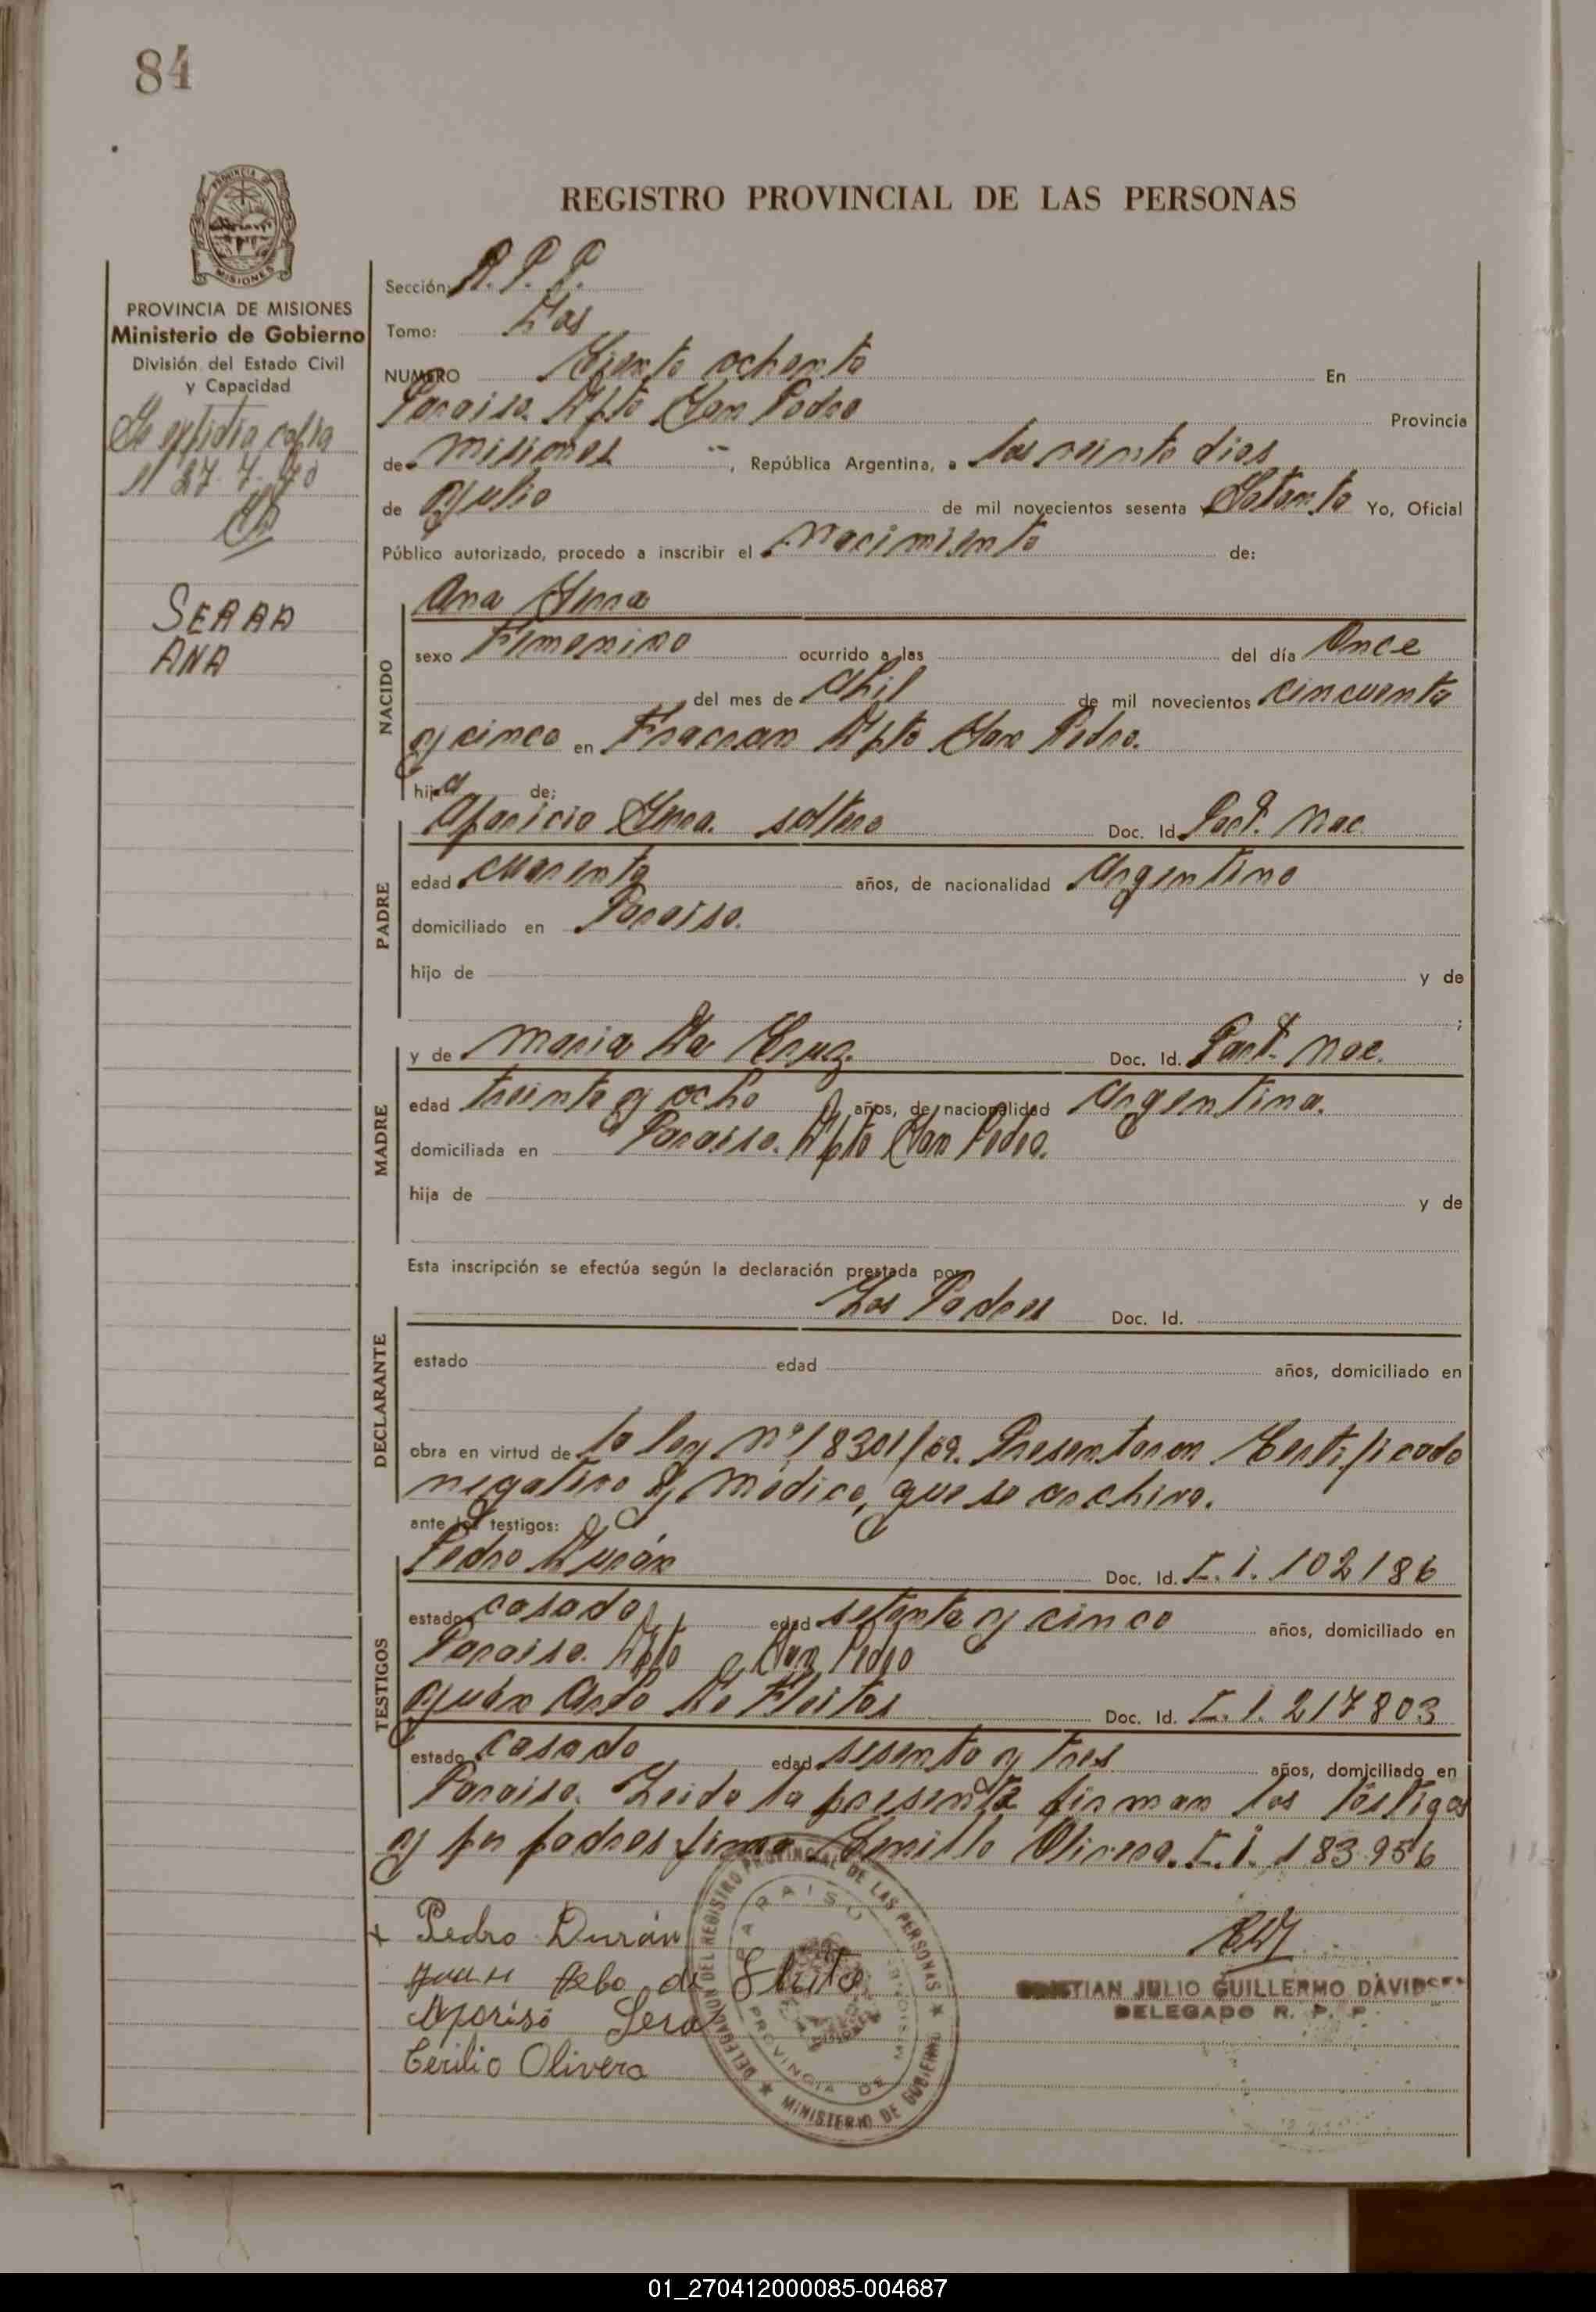 84
REGISTRO PROVINCIAL DE LAS PERSONAS
PROVINCIA DE MISIONES
Ministerio de Gobierno
División del Estado Civil
y Capacidad
Se expidió copia
27.7.70
SERRA
ANA
Sección: R. P. P.
Tomo: Dos
NUMERO Ciento ochenta En
Paraiso. Dpto San Pedro Provincia
de Misiones , República Argentina, a los veinte dias
de Julio de mil novecientos sesenta y Setenta Yo, Oficial
Público autorizado, procedo a inscribir el Nacimiento de:
NACIDO
Ana Serra
sexo Femenino ocurrido a las del día Once
del mes de Abril de mil novecientos cincuenta
y cinco en Fracran Dpto San Pedro.
hija de:
PADRE
Aparicio Serra. soltero Doc. Id. Part. Nac.
edad cuarenta años, de nacionalidad Argentino
domiciliado en Paraiso.
hijo de y de
;
MADRE
y de Maria Da Cruz. Doc. Id. Part. Nac.
edad treinta y ocho años, de nacionalidad Argentina.
domiciliada en Paraiso. Dpto San Pedro.
hija de y de
Esta inscripción se efectúa según la declaración prestada por
DECLARANTE
Los Padres Doc. Id.
estado edad años, domiciliado en
obra en virtud de la ley Nº 18301/69. Presentaron Certificado
negativo y médico, que se archiva.
ante los testigos:
TESTIGOS
Pedro Durán Doc. Id. C.I. 102186
estado casado edad setenta y cinco años, domiciliado en
Paraiso. Dpto San Pedro
Juán De Fleitas Doc. Id. C.I. 217803
estado casado edad sesenta y tres años, domiciliado en
Paraiso. Leida la presente firman los testigos
y por padres firma Olivera. C.I. 183.956
x Pedro Durán
Juan de
Aporiso Sera
Olivera
DELEGACION DEL REGISTRO PROVINCIAL DE LAS PERSONAS
MINISTERIO DE GOBIERNO
PARAISO
PROVINCIA DE MISIONES
CRISTIAN JULIO GUILLERMO DAVIDSEN
DELEGADO R. P. P.
01_270412000085-004687